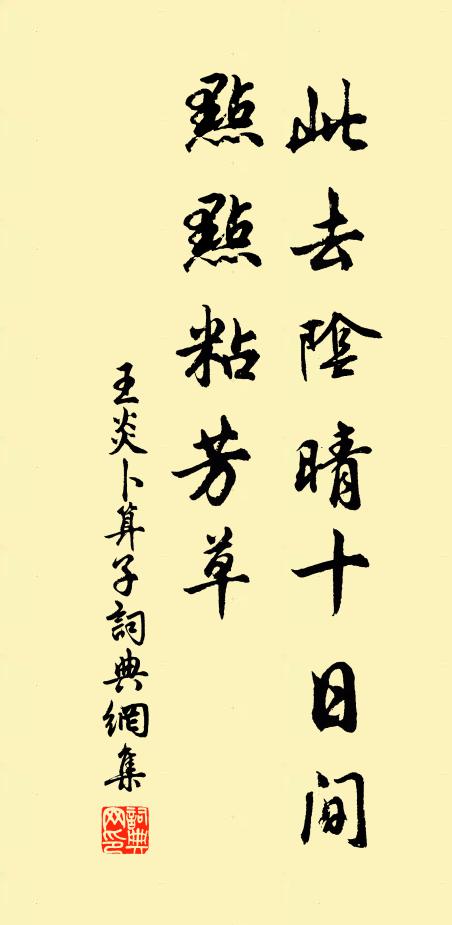 此去陰晴十日間
點點粘芳草
王炎卜算子詞典網集
詞典網印